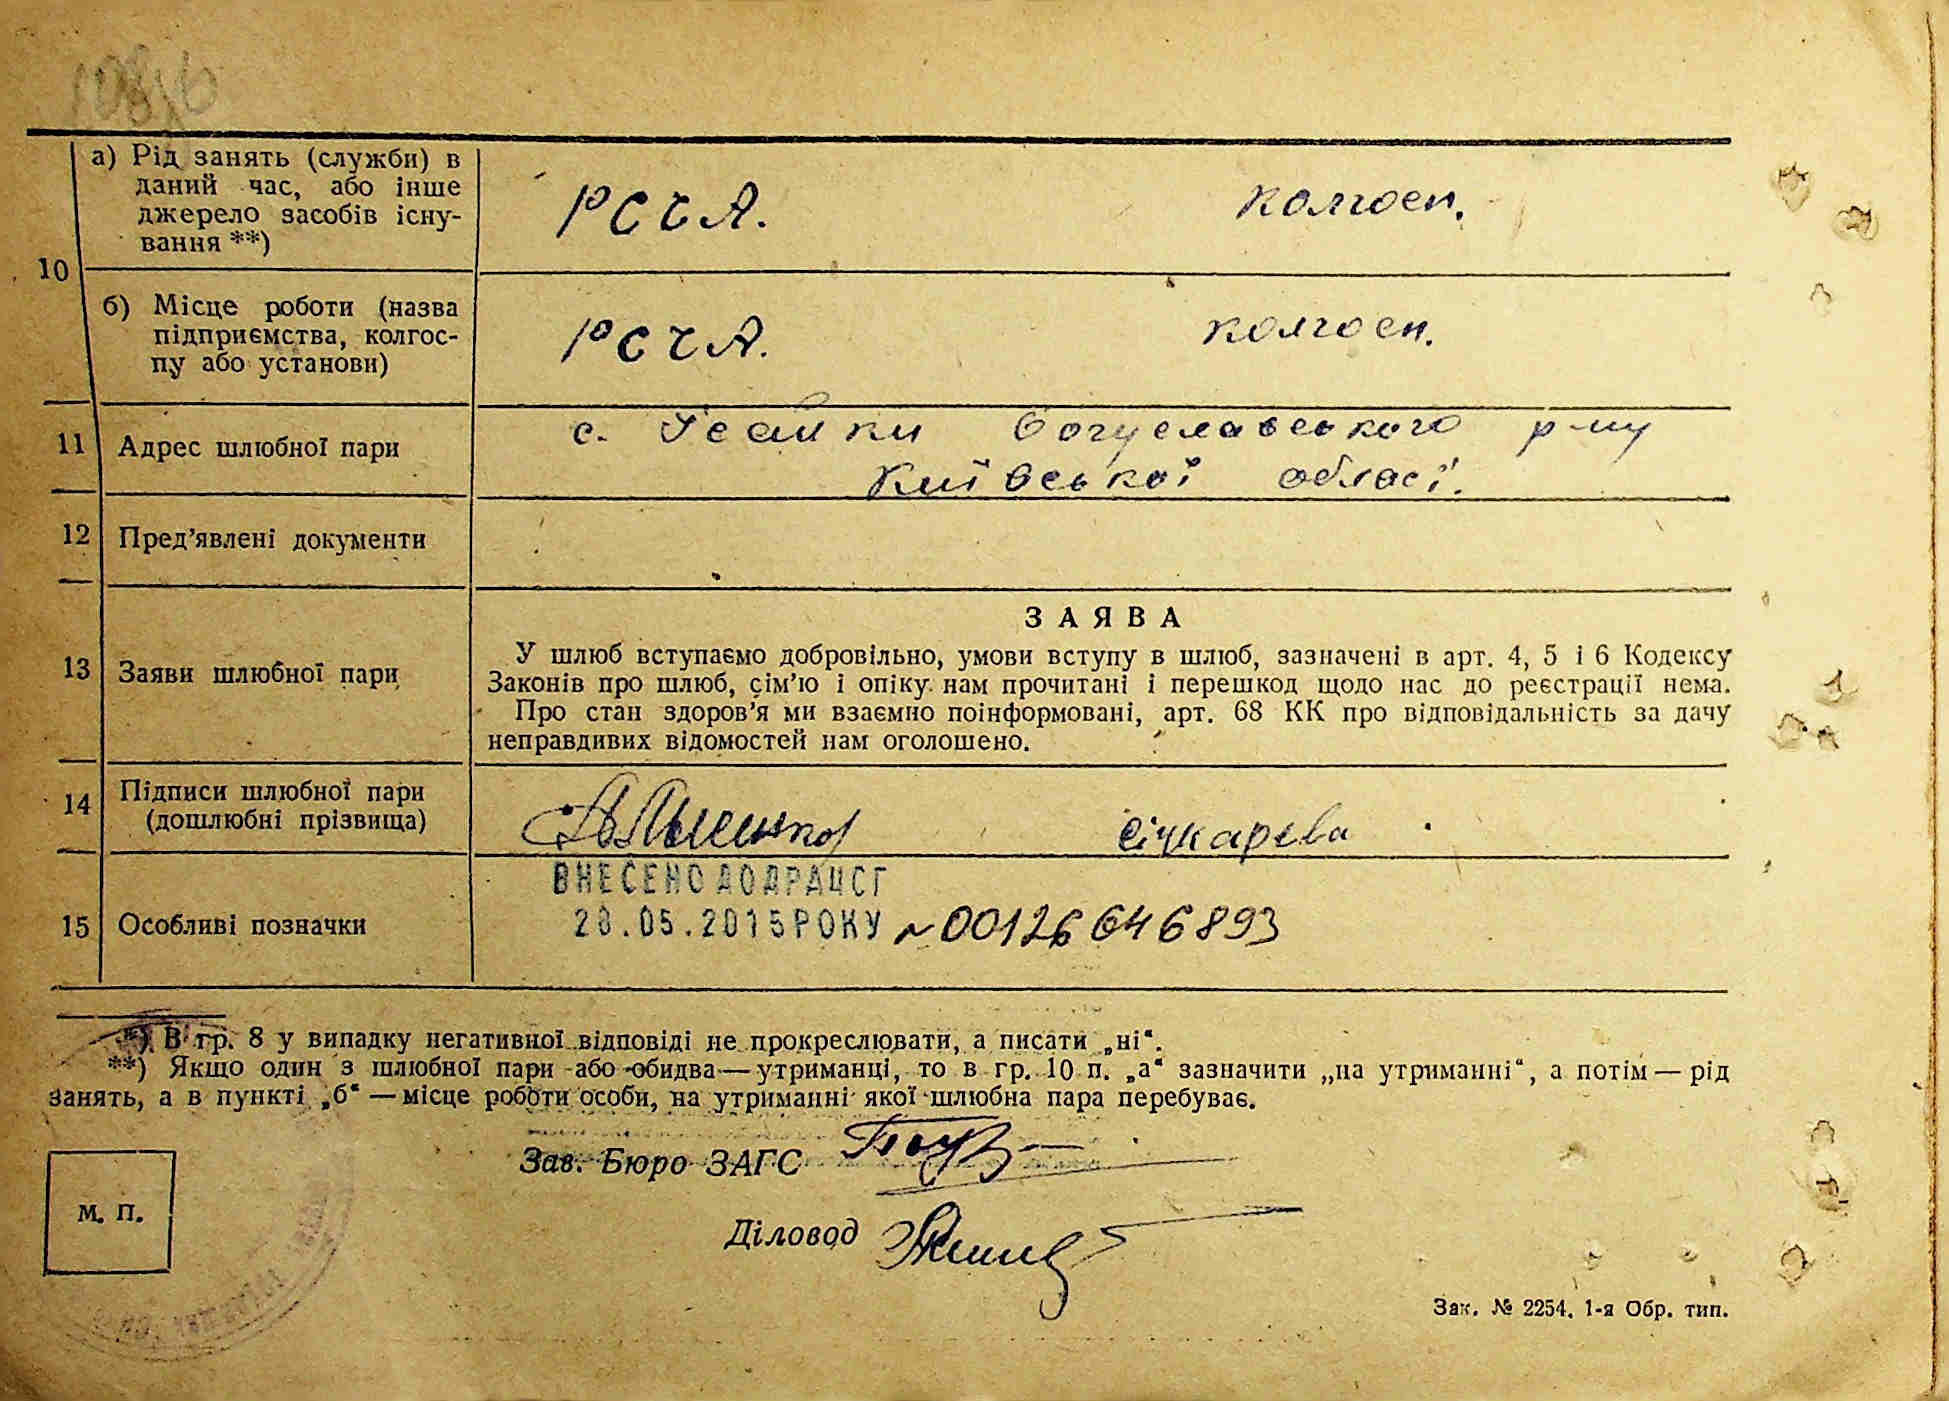 а) Рід занять (служби) в
даний час, або інше
джерело засобів існу-
вання **)
РСЧА.
колгосп.
10
б) Місце роботи (назва
підприємства, колгос-
пу або установи)
РСЧА.
колгосп.
11
Адрес шлюбної пари
с. Ісайки Богуславського р-ну
Київської області.
12
Пред’явлені документи
13
Заяви шлюбної пари
ЗАЯВА
У шлюб вступаємо добровільно, умови вступу в шлюб, зазначені в арт. 4, 5 і 6 Кодексу
Законів про шлюб, сім’ю і опіку нам прочитані і перешкод щодо нас до реєстрації нема.
Про стан здоров’я ми взаємно поінформовані, арт. 68 КК про відповідальність за дачу
неправдивих відомостей нам оголошено.
14
Підписи шлюбної пари
(дошлюбні прізвища)
Січкарева
15
Особливі позначки
ВНЕСЕНО ДО ДРАЦСГ
28.05.2015 РОКУ № 00126646893
*) В гр. 8 у випадку негативної відповіді не прокреслювати, а писати „ні“.
**) Якщо один з шлюбної пари або обидва — утриманці, то в гр. 10 п. „а“ зазначити „на утриманні“, а потім — рід
занять, а в пункті „б“ — місце роботи особи, на утриманні якої шлюбна пара перебуває.
Зав. Бюро ЗАГС
М. П.
Діловод
Зак. № 2254. 1-я Обр. тип.